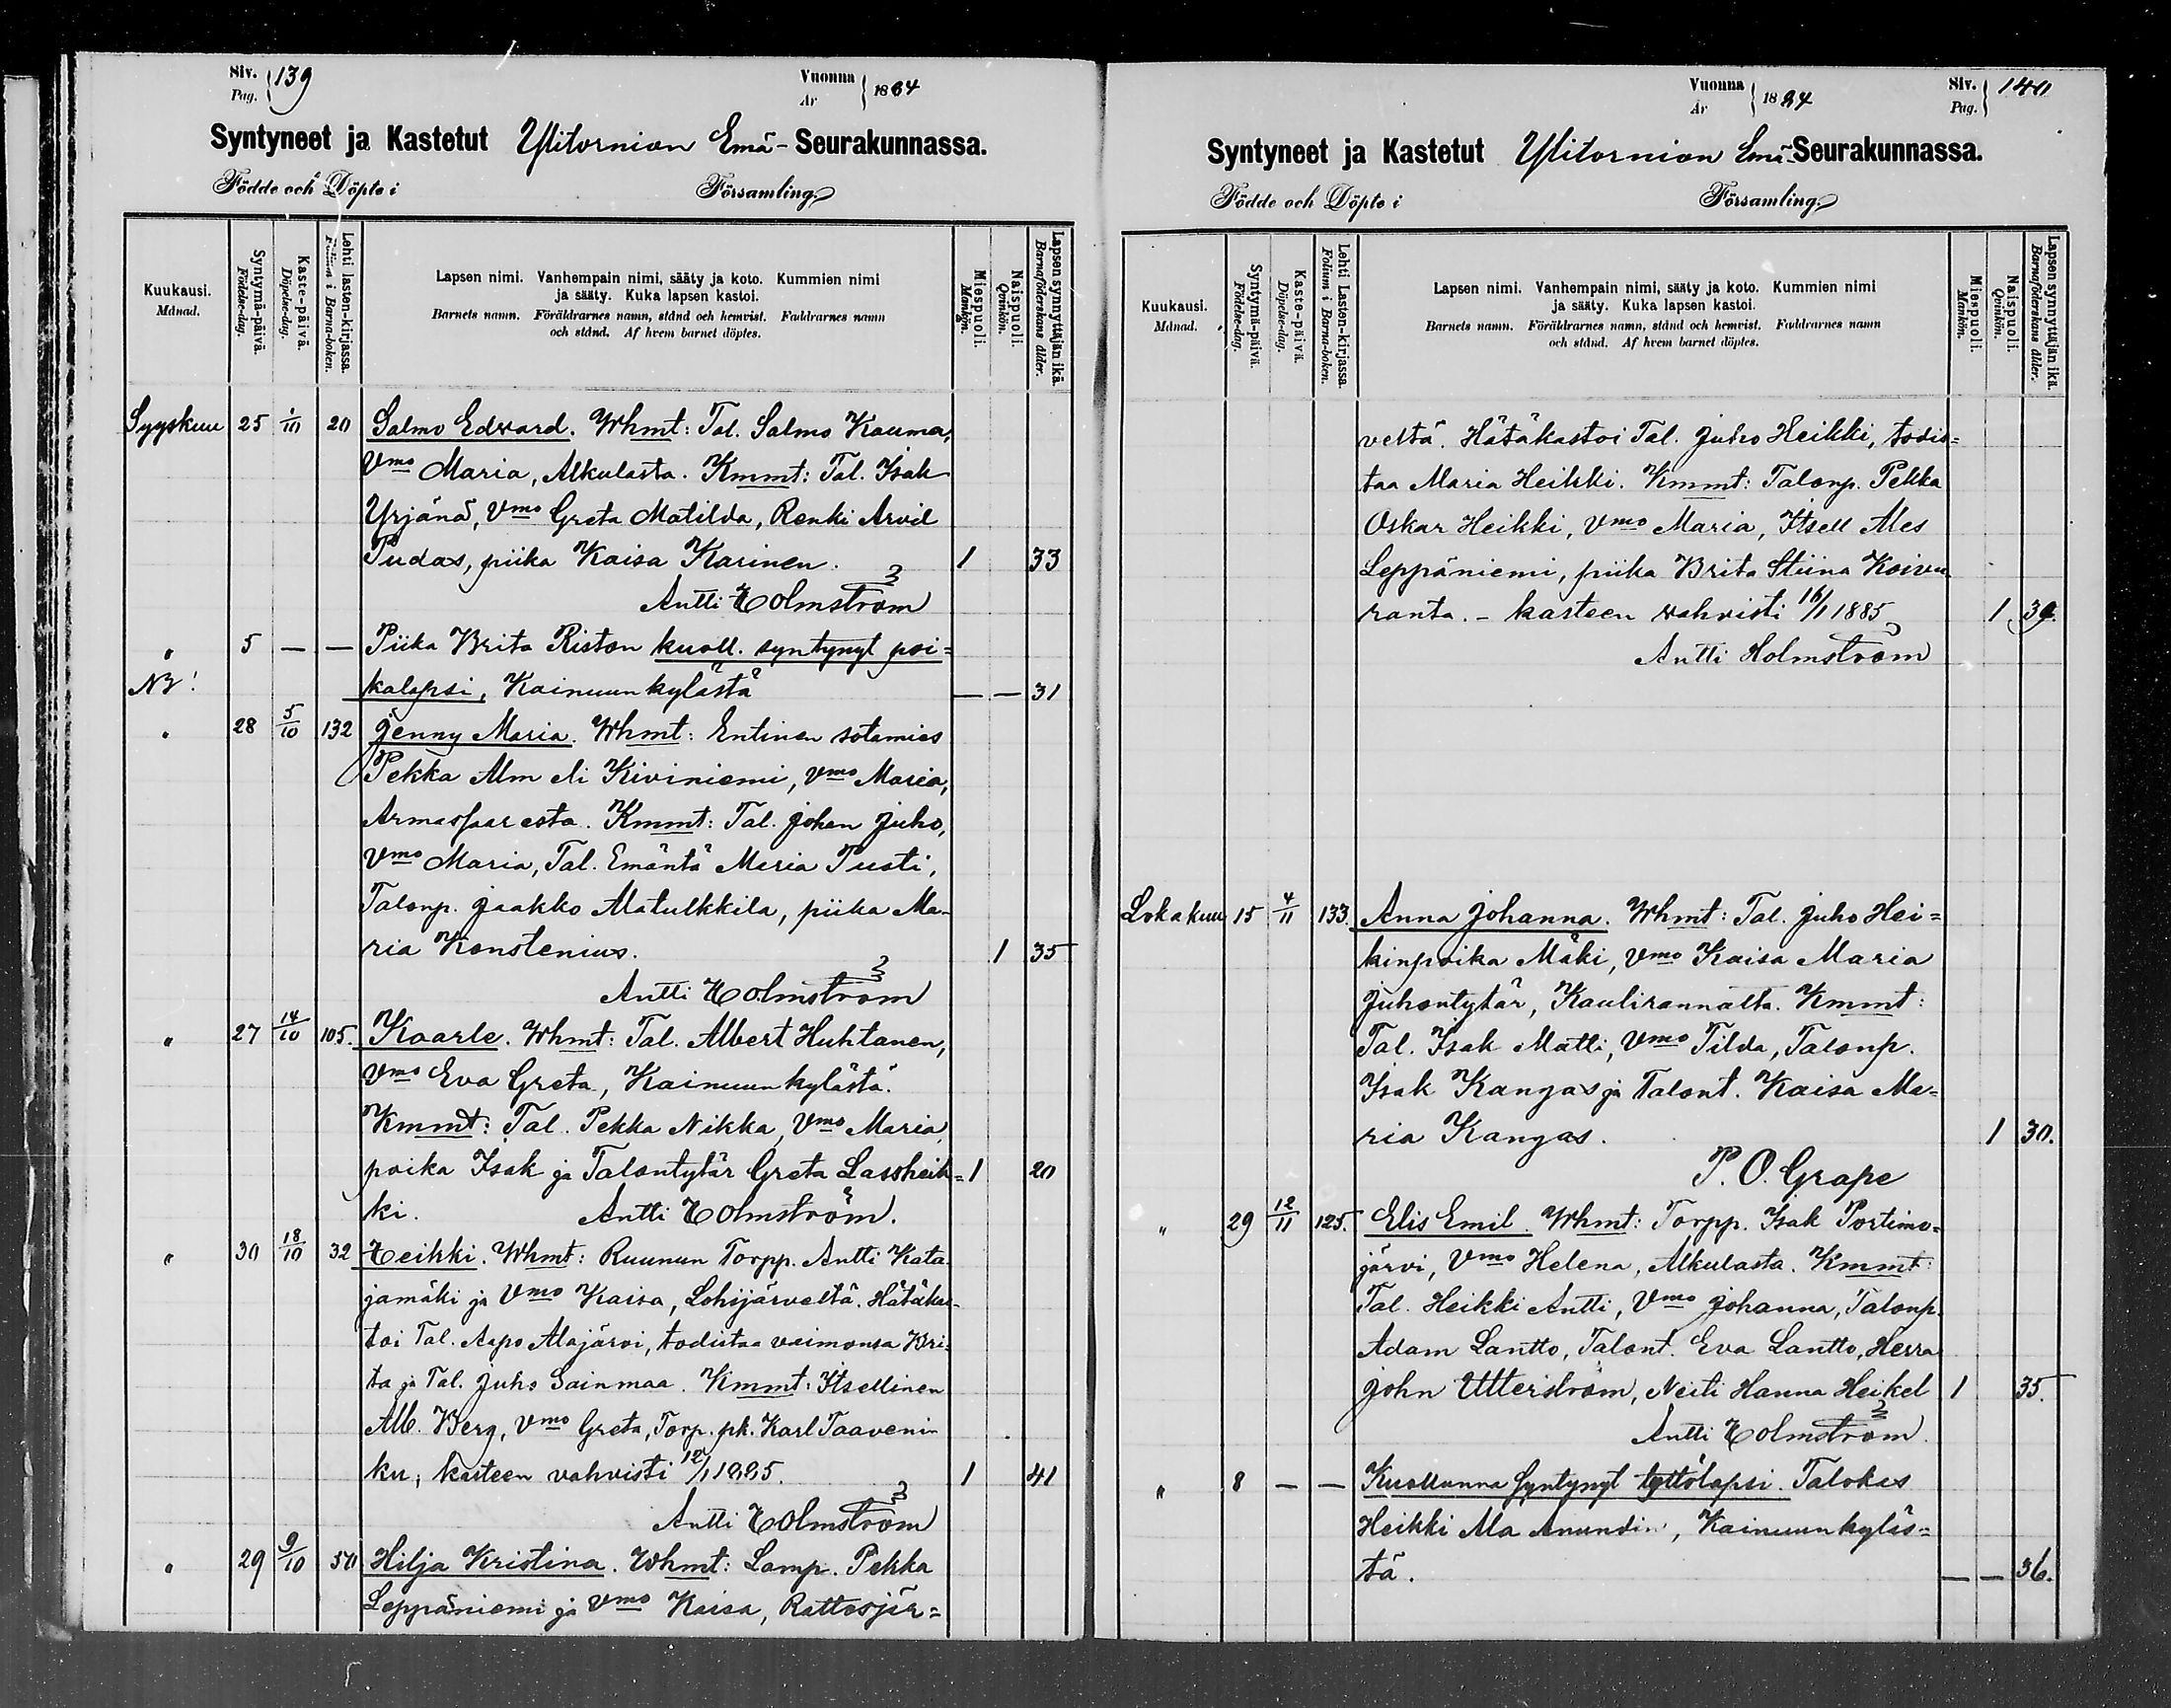 Siv. 139
Pag.
Vuonna 1884
År
Syntyneet ja Kastetut Ylitornion Emä-Seurakunnassa.
Födde och Döpte i Församling
Kuukausi.
Månad.
Syntymä-päivä.
Födelse-dag.
Kaste-päivä.
Döpelse-dag.
Lehti lasten-kirjassa.
Folium i Barna-boken.
Lapsen nimi. Vanhempain nimi, sääty ja koto. Kummien nimi
ja sääty. Kuka lapsen kastoi.
Barnets namn. Föräldrarnes namn, stånd och hemvist. Faddrarnes namn
och stånd. Af hvem barnet döptes.
Miespuoli.
Mankön.
Naispuoli.
Qvinkön.
Lapsen synnyttäjän ikä.
Barnaföderskans ålder.
Syyskuu 25 1/10 20 Salmo Edvard. Whmt: Tal. Salmo Kauma,
Vmo Maria, Alkulasta. Kmmt: Tal. Isak
Yrjänä, Vmo Greta Matilda, Renki Arvid
Pudas, piika Kaisa Karinen. 1 33
Antti Holmström
" 5 — — Piika Brita Riston kuoll. syntynyt poi=
NB! kalapsi, Kainuunkylästä — — 31
" 28 5/10 132 Jenny Maria. Whmt: Entinen sotamies
Pekka Alm eli Kiviniemi, Vmo Maria,
Armassaaresta. Kmmt: Tal. Johan Juho,
Vmo Maria, Tal. Emäntä Maria Pusti,
Talonp. Jaakko Matulkkila, piika Ma-
ria Konstenius. 1 35
Antti Holmström
" 27 14/10 105. Kaarle. Whmt: Tal. Albert Huhtanen,
Vmo Eva Greta, Kainuunkylästä.
Kmmt: Tal. Pekka Nikka, Vmo Maria,
poika Isak ja Talontytär Greta Lassheik= 1 20
ki. Antti Holmström.
" 30 18/10 32 Heikki. Whmt: Ruunun Torpp. Antti Kata-
jamäki ja Vmo Kaisa, Lohijärveltä. Hätäkas-
toi Tal. Aapo Alajärvi, todistaa vaimonsa Bri-
ta ja Tal. Juho Sainmaa. Kmmt: Itsellinen
Alb. Berg, Vmo Greta, Torp. pk. Karl Taavenin-
ku, kasteen vahvisti 12/1 1885. 1 41
Antti Holmström
" 29 9/10 50 Hilja Kristina. Whmt: Lamp. Pekka
Leppäniemi ja Vmo Kaisa, Rattosjär=
Vuonna 1884
År
Siv. 140
Pag.
Syntyneet ja Kastetut Ylitornion Emä-Seurakunnassa.
Födde och Döpte i Församling
Kuukausi.
Månad.
Syntymä-päivä.
Födelse-dag.
Kaste-päivä.
Döpelse-dag.
Lehti Lasten-kirjassa.
Folium i Barna-boken.
Lapsen nimi. Vanhempain nimi, sääty ja koto. Kummien nimi
ja sääty. Kuka lapsen kastoi.
Barnets namn. Föräldrarnes namn, stånd och hemvist. Faddrarnes namn
och stånd. Af hvem barnet döptes.
Miespuoli.
Mankön.
Naispuoli.
Qvinkön.
Lapsen synnyttäjän ikä.
Barnaföderskans ålder.
veltä. Hätäkastoi Tal. Juho Heikki, todis=
taa Maria Heikki. Kmmt: Talonp. Pekka
Oskar Heikki, Vmo Maria, Itsell Ales
Leppäniemi, piika Brita Stiina Koivu-
ranta. - kasteen vahvisti 16/1 1885 1
Antti Holmström
Lokakuu 15 4/11 133. Anna Johanna. Whmt: Tal. Juho Hei=
kinpoika Mäki, Vmo Kaisa Maria
Juhontytär, Kaulirannalta. Kmmt:
Tal. Isak Matti, Vmo Tilda, Talonp.
Isak Kangas ja Talont. Kaisa Ma=
ria Kangas. 1 30.
P. O. Grape
" 29 12/11 125. Elis Emil. Whmt: Torpp. Isak Portimo=
järvi, Vmo Helena, Alkulasta. Kmmt:
Tal. Heikki Antti, Vmo Johanna, Talonp.
Adam Lantto, Talont. Eva Lantto, Herra
John Utterström, Neiti Hanna Heikel 1 35.
Antti Holmström
" 8 — — Kuollunna syntynyt tyttölapsi. Talokas
Heikki Ala Anundin, Kainuunkyläs=
tä. — — 36.